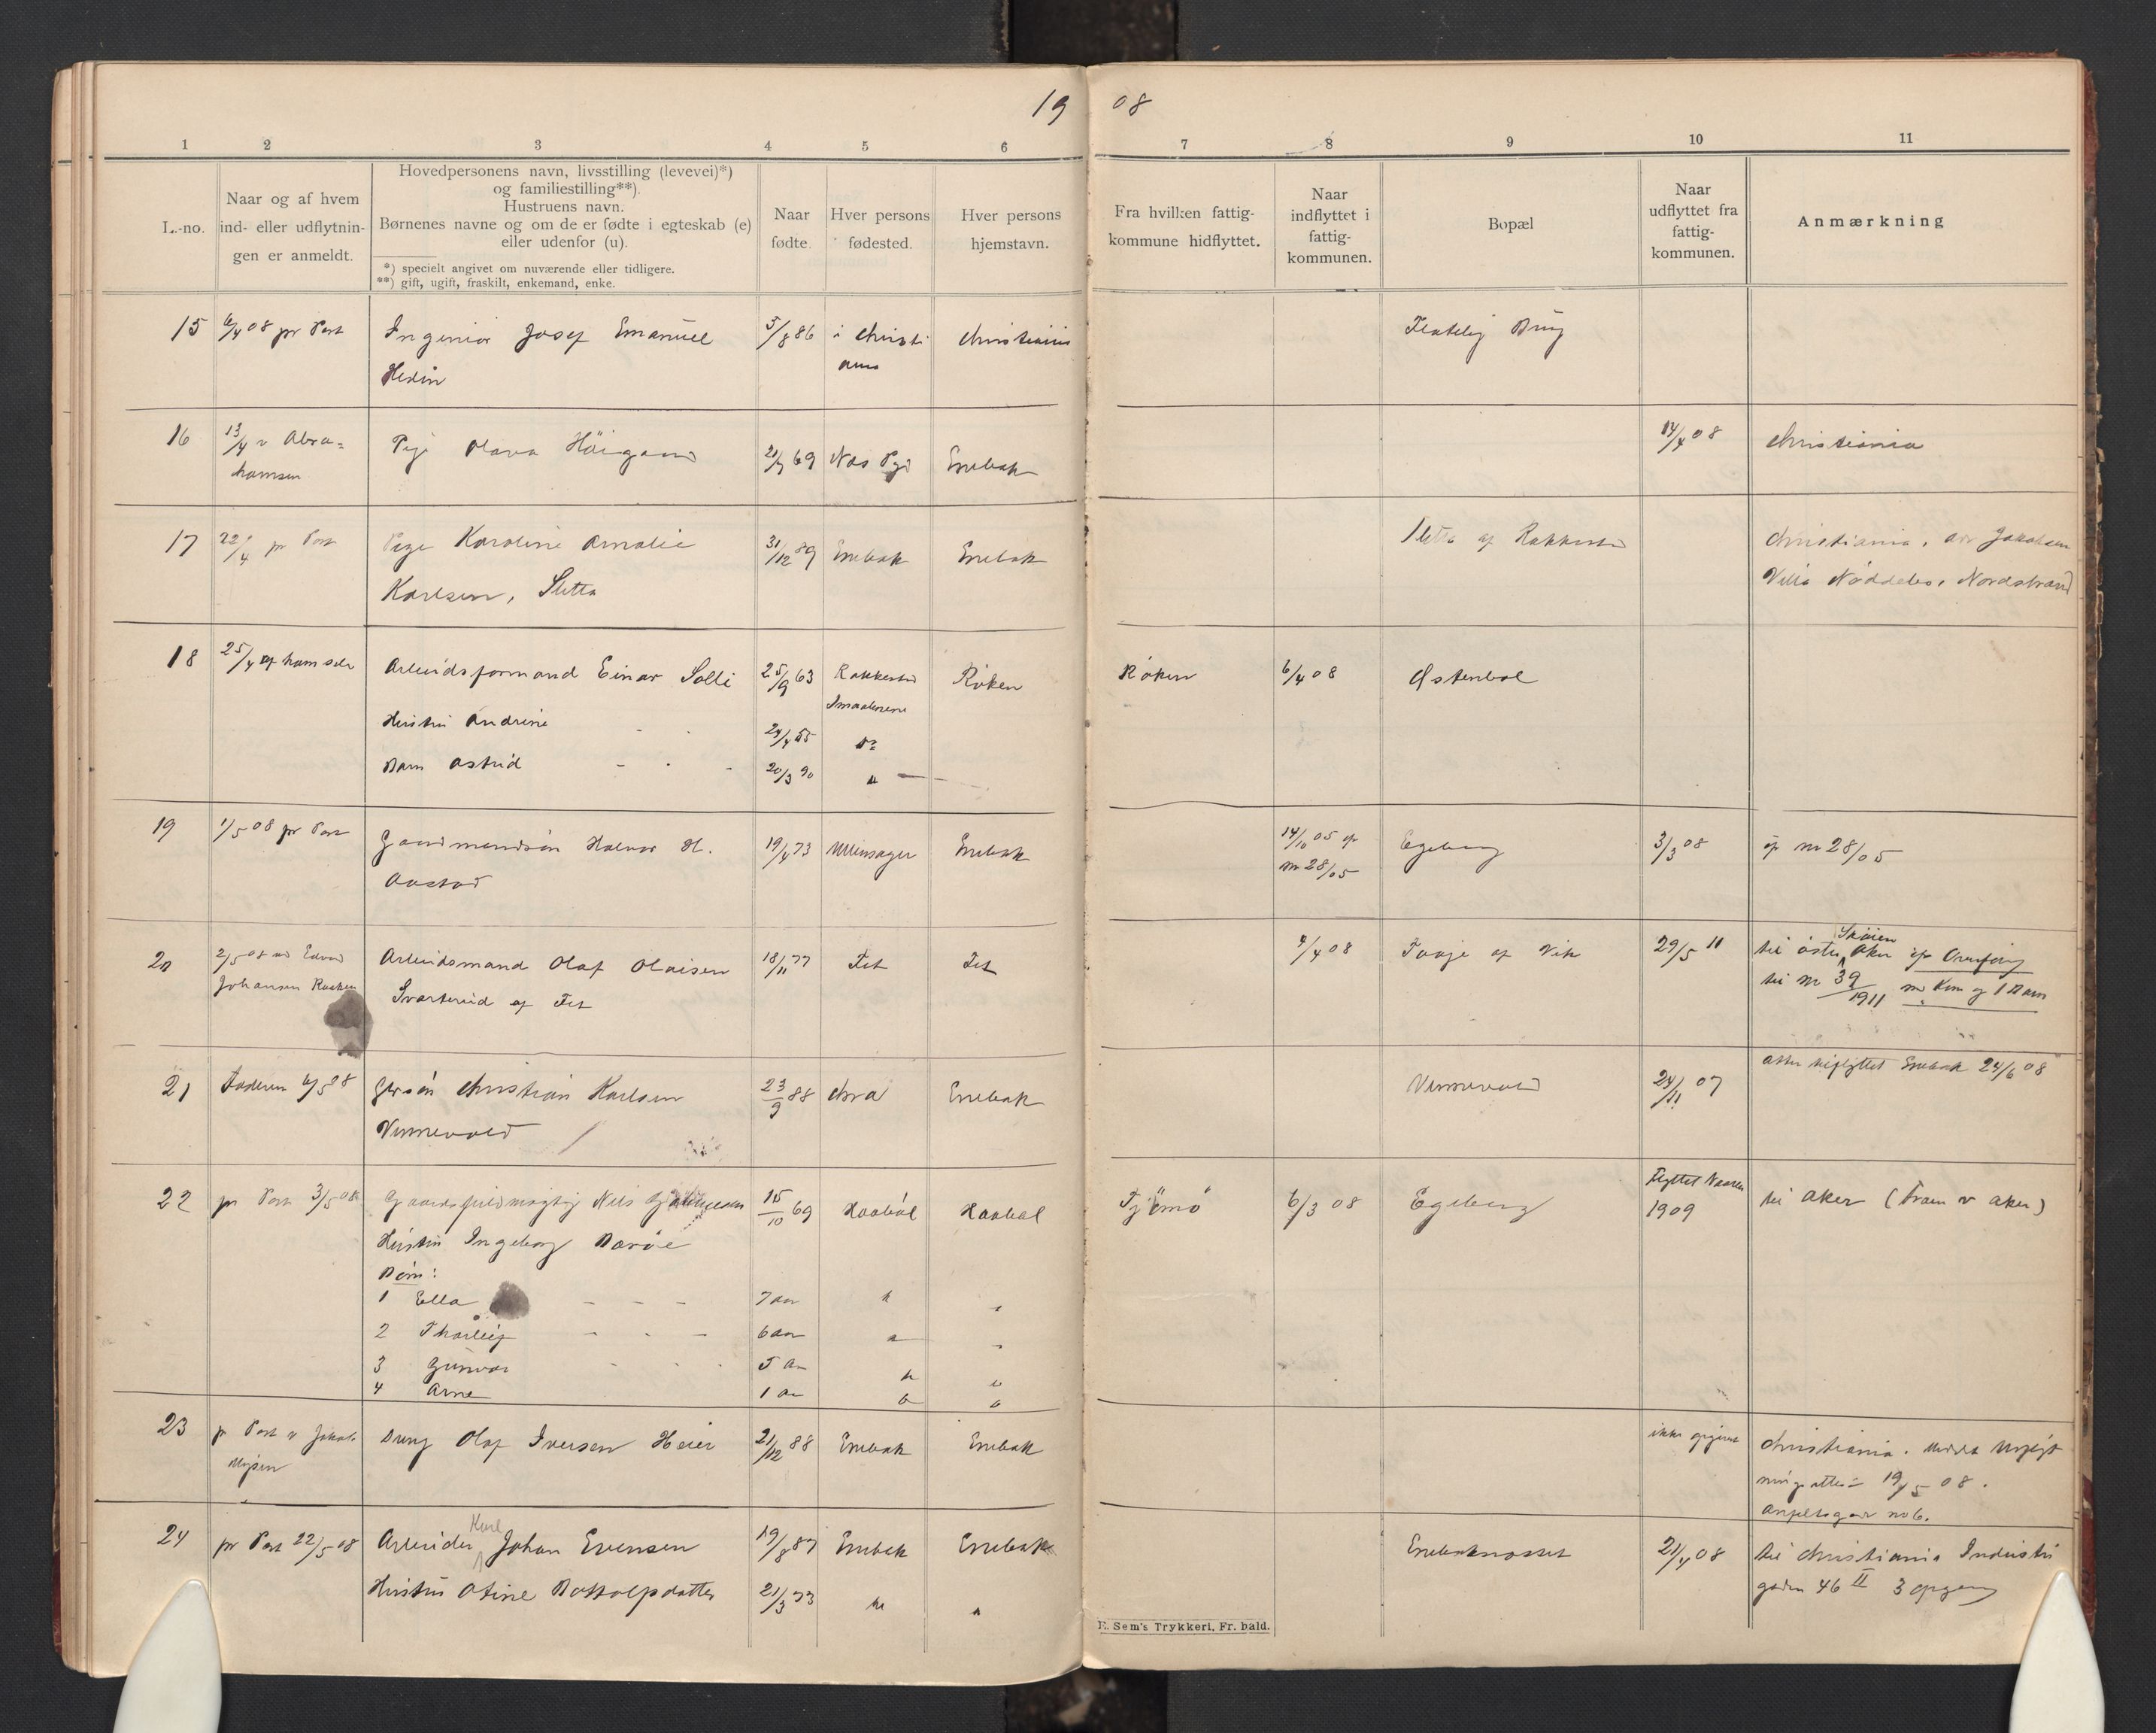 19 08
1 2 3 4 5 6 7 8 9 10 11
L.-no.
Naar og af hvem
ind- eller udflytnin-
gen er anmeldt.
Hovedpersonens navn, livsstilling (levevei)*)
og familiestilling**).
Hustruens navn.
Børnenes navne og om de er fødte i egteskab (e)
eller udenfor (u).
*) specielt angivet om nuværende eller tidligere.
**) gift, ugift, fraskilt, enkemand, enke.
Naar
fødte.
Hver persons
fødested.
Hver persons
hjemstavn.
Fra hvilken fattig-
kommune hidflyttet.
Naar
indflyttet i
fattig-
kommunen.
Bopæl
Naar
udflyttet fra
fattig-
kommunen.
Anmærkning
15 6/4 08 pr Post Ingeniør Josef Emanuel 5/8 86 i Christi christiania Flateby Brug
Hedin ania
16 13/4 v Abra= Pige Olava 21/7 69 Næs Enebak 14/4 08 Christiania
hamsen
17 22/4 pr Post Pige Karoline Amalie 31/12 89 Enebak Enebak Sletta af Rakkestad Christiania. adr Jakobsen
Karlsen, Sletta Villa Nøddebo, Nordstrand
18 25/4 af ham selv Arbeidsformand Einar Solli 25/9 63 Rakkestad Røken Røken 6/4 08 Østenbøl
Smaalenene
Hustru Andrine - - 24/4 55 Do
Barn Astrid - - - 20/3 90 " —
19 1/5 08 pr Post Gaardmandsøn Halvor H. 19/4 73 Ullensager Enebak 14/10 05 op Egeberg 3/3 08 op nr 28/05
Aastad nr 28/05
20 2/5 08 ved Edvard Arbeidsmand Olaf Olaisen 18/11 77 Fet Fet 4/4 08 Tvøje af Vik 29/5 11 til østre Skøien Aker
Johansen Svarterud af Fet til nr 39/1911 m Kone og 1 Barn
21 Faderen 6/5 08 Christian Karlsen 23/9 88 Chra Enebak Vennevold 24/11 07 atter tilflyttet Enebak 24/6 08
Vennevold
22 pr Post 3/5 08 Gaardsfuldmægtig Nils 15/10 69 Haabøl Haabøl Tjømø 6/3 08 Egeberg Flyttet Vaaren til Aker (Fram v Aker)
1909
Hustru Ingeborg
Børn:
1 Ella - - - 7 aar " "
2 Thorleif - - - 6 aar " "
3 Gunvor - - - 5 aar " "
4 Arne 1 aar " "
23 pr Post v Jakob Dreng Olaf Iversen Heier 21/12 88 Enebak Enebak ikke opgivet Christiania.
Mysen 19/5 08.
no 6.
24 pr Post 22/5 08 Arbeider Karl Johan Evensen 19/8 87 Enebak Enebak Enebaknesset 21/4 08 til Christiania Industri
Hustru Otine Bottolfsdatter 21/3 73 " " gaden 46 II 3 opgang
E. Sem's Trykkeri, Fr. hald.